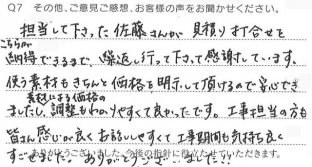 Q7 その他、ご意見ご感想、お客様の声をお聞かせください。
担当して下さった佐藤さんが見積り打合せを
こちらが
納得できるまで、繰返し行って下さって感謝しています。
使う素材もきちんと価格を明示して頂けるので安心でき
素材による価格の
ましたし、調整もわかりやすくて良かったです。工事担当の方も
皆さん感じが良くお話ししやすくて工事期間も気持ち良く
すごせました。ありがとうございました!!
ありがとうございました。今後の指針に役立たせていただきます。